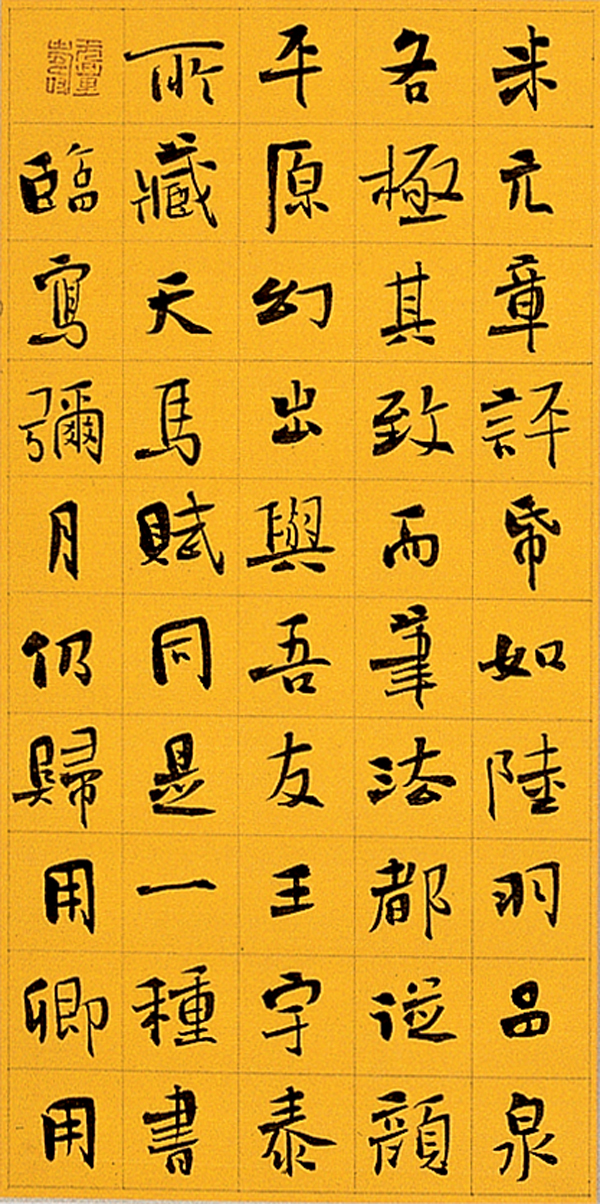 米元章評帋如陸羽品泉
各極其致而筆法都從顏
平原幻出與吾友王宇泰
所藏天馬賦同是一種書
臨寫彌月仍歸用卿用